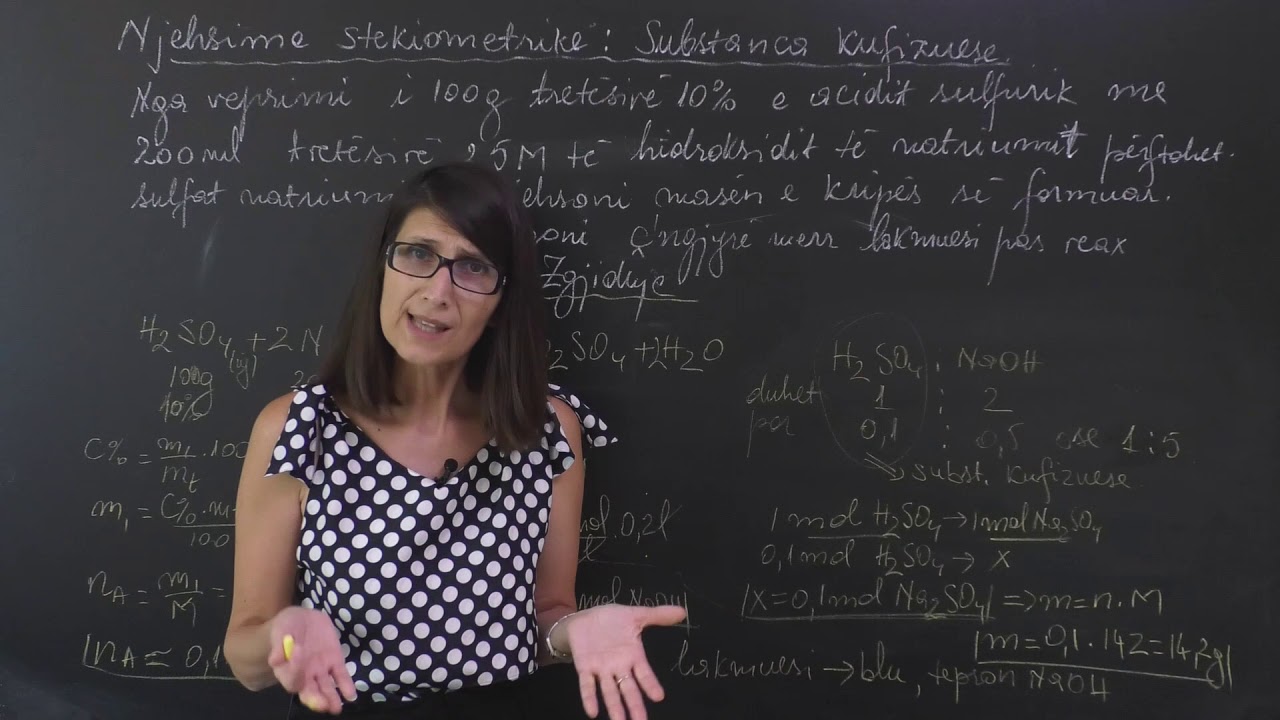 Njehsime stekiometrike: Substanca kufizuese
Nga veprimi i 100g tretësirë 10% e acidit sulfurik me
200ml tretësirë 5M të hidroksidit të natriumit përftohet
sulfat natrium ehsoni masën e kripës së formuar.
oni ç'ngjyrë merr lakmuesi pas reax
Zgjidhje
H₂SO₄ + 2N ₂SO₄ + 2H₂O
100g
10%
C% = m₁/mₜ · 100
m₁ = C% · m /100
nA = m₁/M =
nA ≃ 0,1
mol · 0,2l
mol NaOH
H₂SO₄ : NaOH
duhet 1 : 2
por 0,1 : 0,5 ose 1:5
subst. kufizuese
1 mol H₂SO₄ → 1 mol Na₂SO₄
0,1 mol H₂SO₄ → X
X = 0,1 mol Na₂SO₄ ⇒ m = n . M
m = 0,1 . 142 = 14,2g
lakmuesi → blu, tepron NaOH